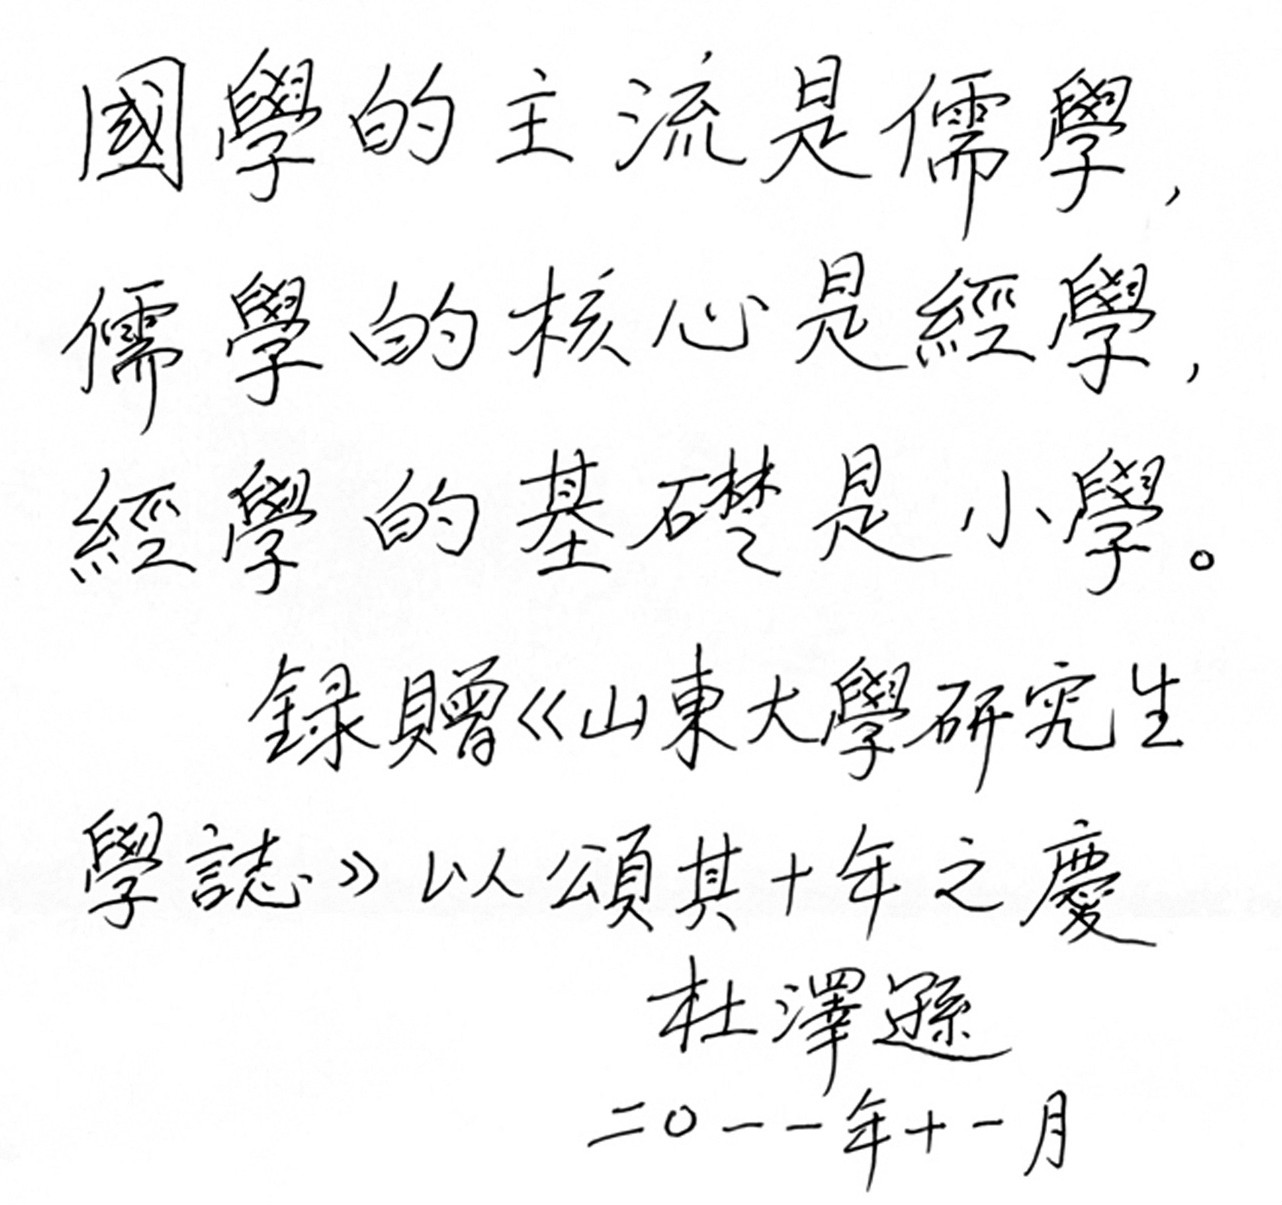 國學的主流是儒學，
儒學的核心是經學，
經學的基礎是小學。
録贈《山東大學研究生
學誌》以頌其十年之慶
杜澤遜
二〇一一年十一月